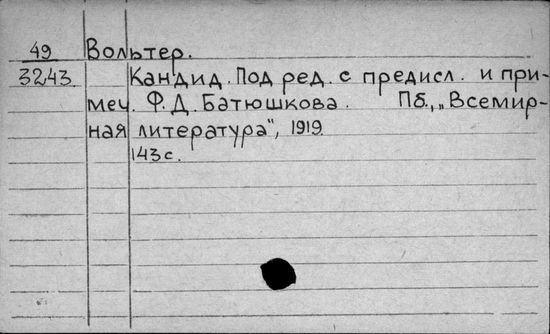 49 Вольтер.
3243 Кандид. Под ред. с предисл. и при-
меч. Ф.Д. Батюшкова. Пб., „Всемир-
ная литература", 1919.
143с.